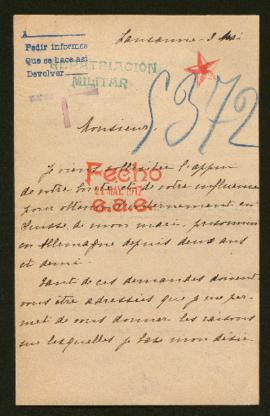 A
Pedir informes
Que se hace así
Devolver
REPATRIACIÓN
MILITAR
Lausanne - 3 Mai
5372
Monsieur,
Je viens solliciter l'appui
de votre
et de votre influence
pour obtenir l'internement en
Suisse, de mon mari, prisonnier
en Allemagne depuis deux ans
et demi.
Fecho
21 MAY. 1917
e.a.e.
Tant de ces demandes doivent
vous être adressées que je me per-
met de vous donner les raisons
sur lesquelles je base mon désir